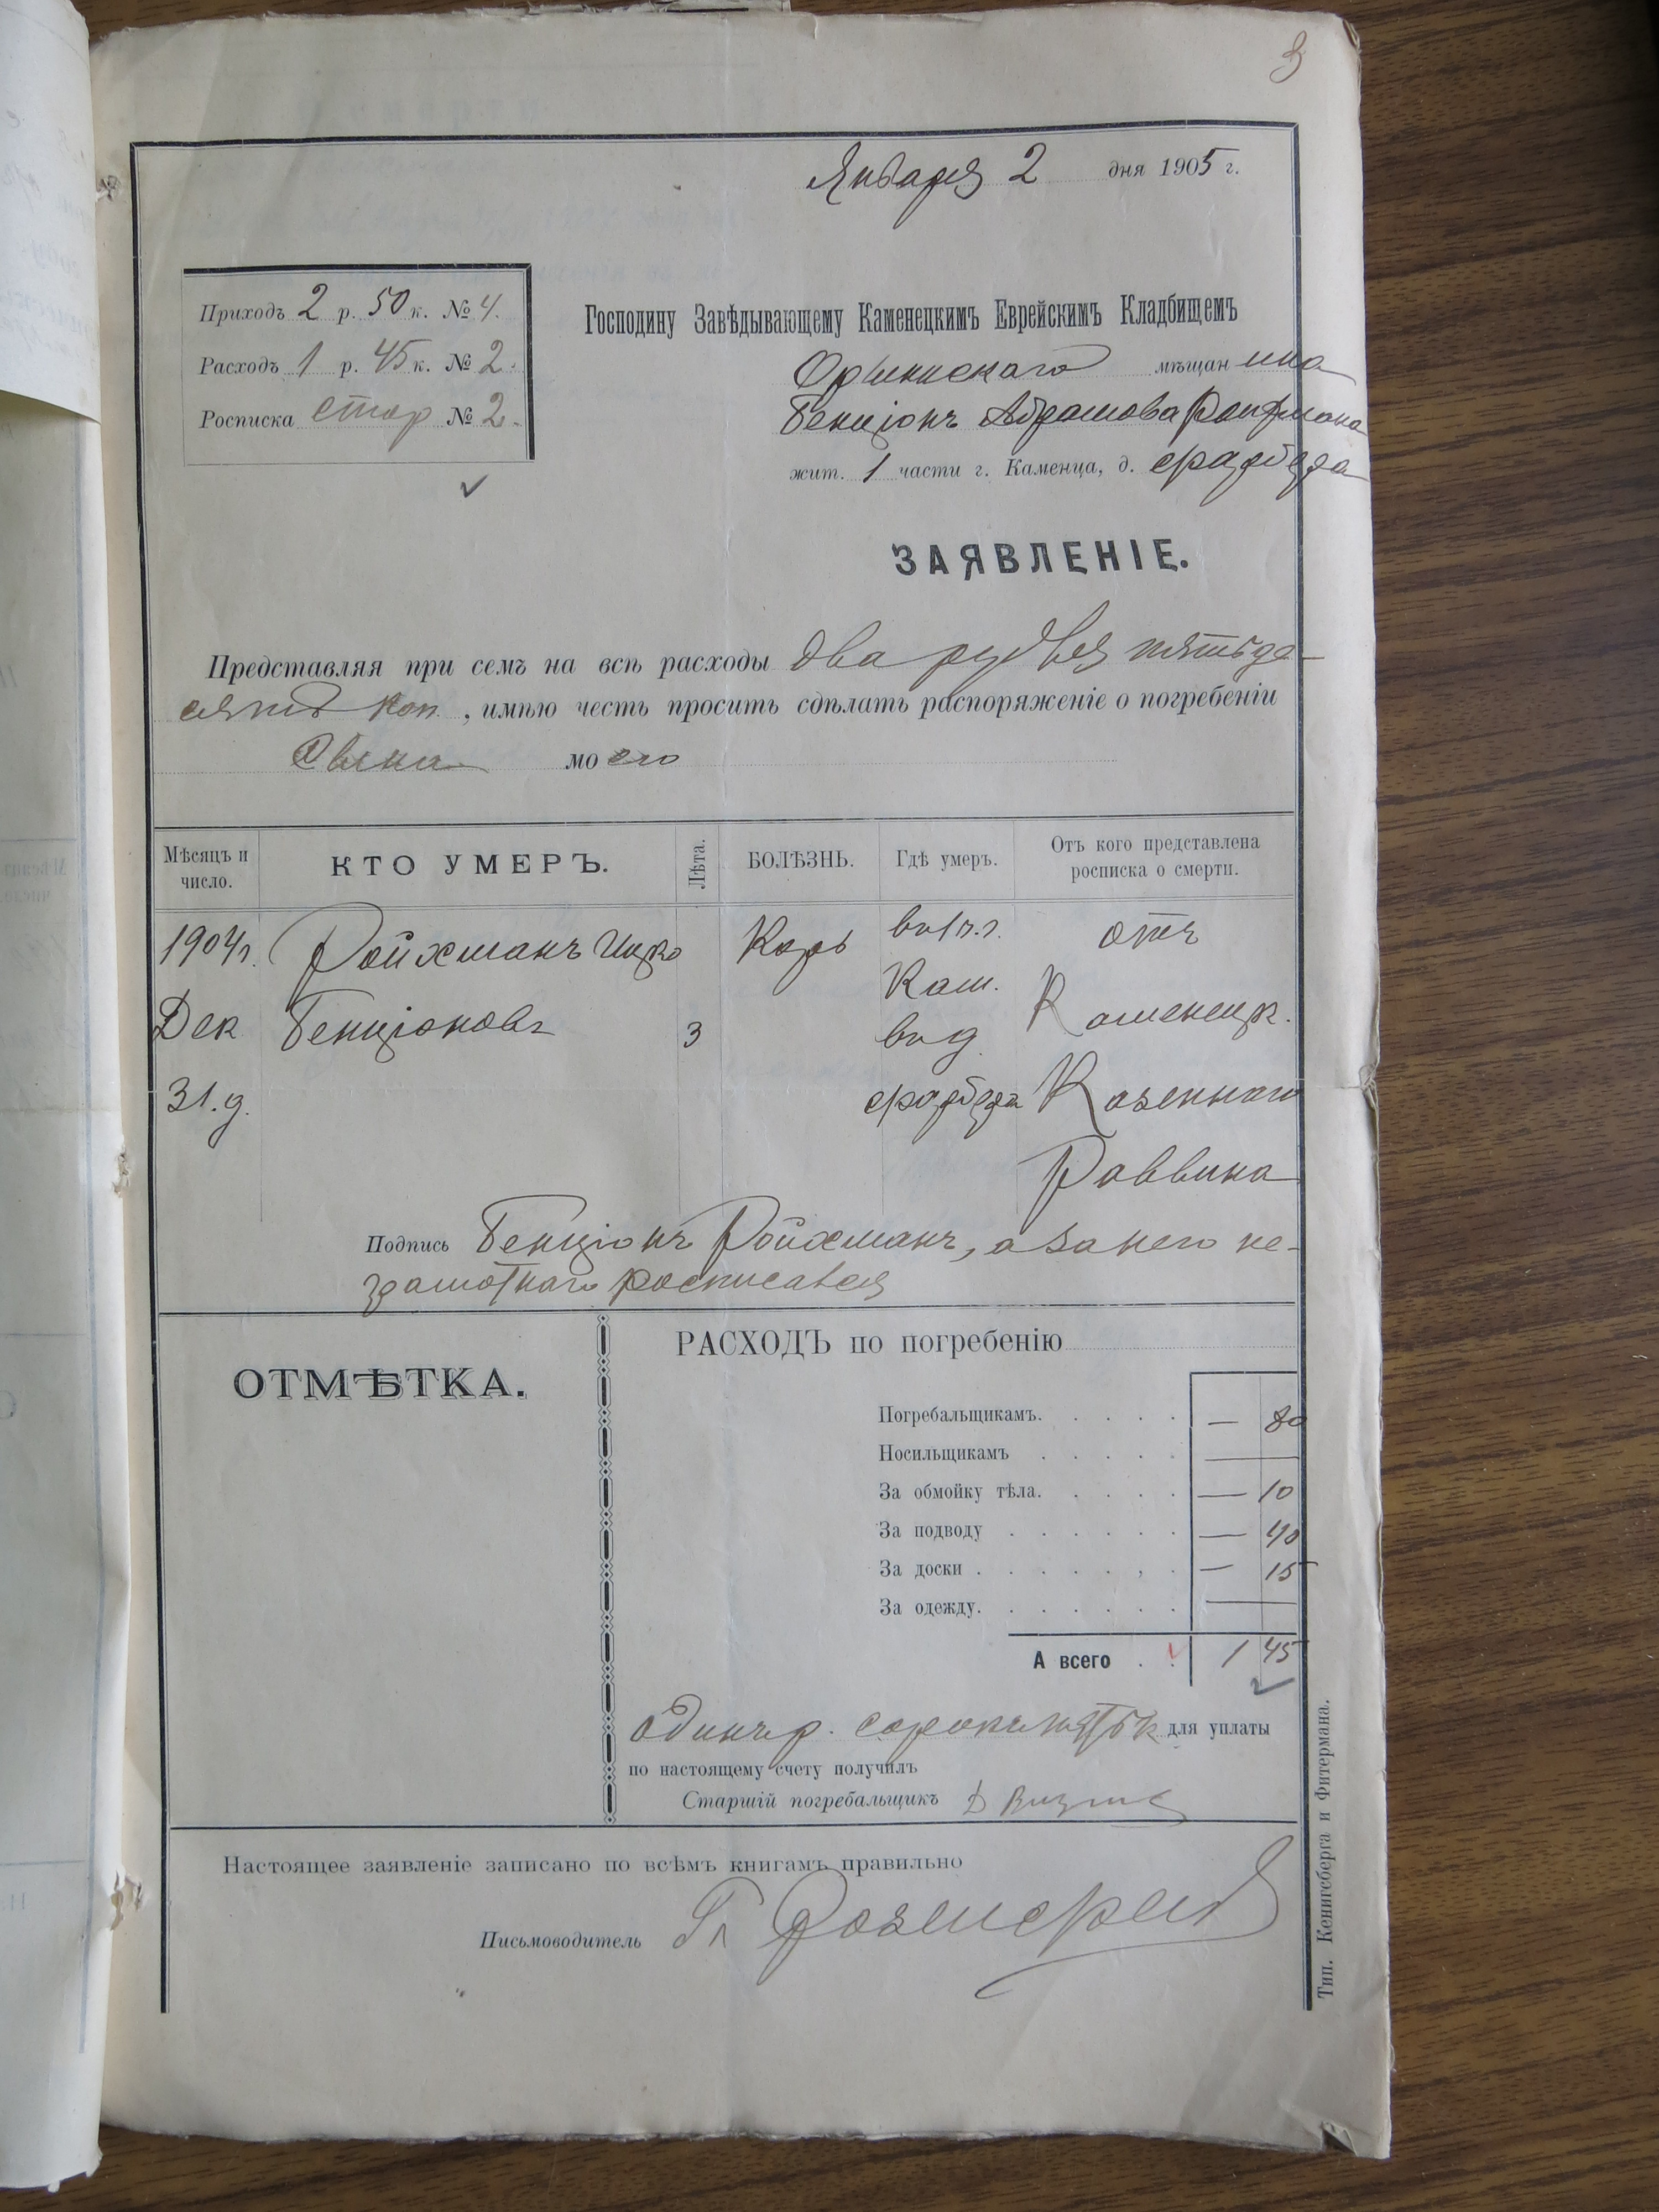 3
Января 2 дня 1905 г.
Приходъ 2 р. 50 к. № 4.
Расходъ 1 р. 45 к. № 2.
Росписка стор № 2.
Господину Завѣдывающему Каменецкимъ Еврейскимъ Кладбищемъ
Орининскаго мѣщанина
Бенціонъ Абрамова Ройхмана
жит. 1 части г. Каменца, д.
ЗАЯВЛЕНІЕ.
Представляя при семъ на всѣ расходы два рубля пятьде-
сятъ коп., имѣю честь просить сдѣлать распоряженіе о погребеніи
Сына моего
Мѣсяцъ и число.
КТО УМЕРЪ.
Лѣта.
БОЛѢЗНЬ.
Гдѣ умеръ.
Отъ кого представлена росписка о смерти.
1904г. Ройхманъ Ицко Корь въ 1 ч. г. отъ
Дек Бенціоновъ 3 Кам. Каменецк.
31 д. въ д. Казеннаго
Раввина
Подпись Бенціонъ Ройхманъ, а за него не-
грамотнаго росписался
ОТМѢТКА.
РАСХОДЪ по погребенію
Погребальщикамъ. — 80
Носильщикамъ —
За обмойку тѣла. — 10
За подводу — 40
За доски — 15
За одежду. —
А всего 1 45
одинъ р. сорокъ пять к для уплаты
по настоящему счету получилъ
Старшій погребальщикъ
Настоящее заявленіе записано по всѣмъ книгамъ правильно
Письмоводитель
Тип. Кенигсберга и Фитермана.